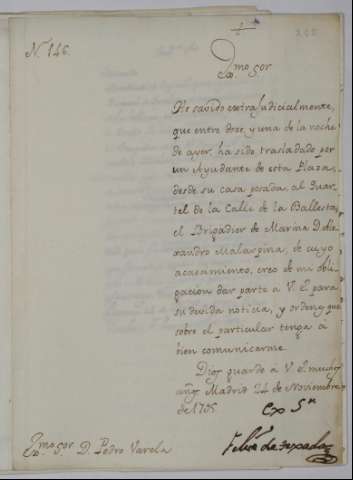 N. 146.
Exmo Sor
He savido extrajudicialmente,
que entre doze, y una de la noche
de ayer, ha sido trasladado por
un Ayudante de esta Plaza,
desde su casa posada, al Quar-
tel de la Calle de la Ballesta,
el Brigadier de Marina D. Ale-
xandro Malaspina, de cuyo
acaecimiento, creo de mi obli-
gacion dar parte a V. E. para
su devida noticia, y ordenes que
sobre el particular tenga a
bien comunicarme.
Dios guarde a V. E. muchos
años. Madrid 24 de Noviembre
de 1795.
Exo Sr
Felix de Texada
Exmo Sor D. Pedro Varela